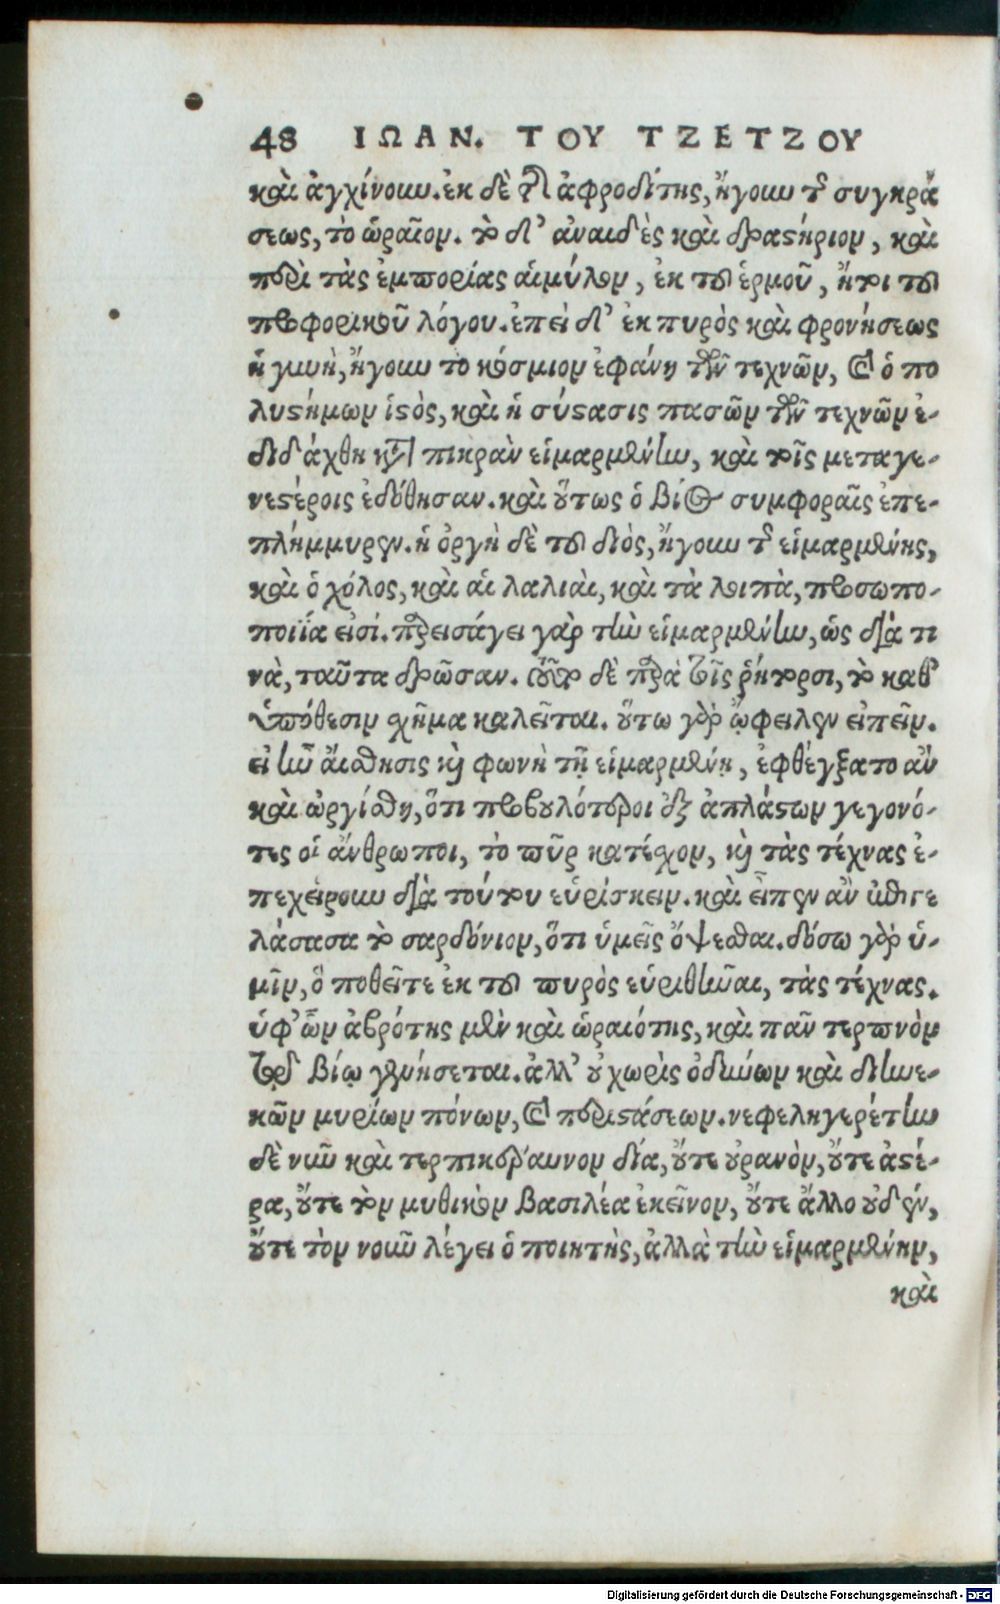 48 ΙΩΑΝ. ΤΟΥ ΤΖΕΤΖΟΥ
καὶ ἀγχίνουν. ἐκ δὲ τῆς ἀφροδίτης, ἤγουν τῆς συγκρά
σεως, τὸ ὡραῖον. τὸ δ' ἀναιδὲς καὶ δραστήριον, καὶ
περὶ τὰς ἐμπορίας αἱμύλον, ἐκ τοῦ ἑρμοῦ, ἤτοι τοῦ
προφορικοῦ λόγου. ἐπεὶ δ' ἐκ πυρὸς καὶ φρονήσεως
ἡ γυνὴ, ἤγουν τὸ κόσμιον ἐφάνη τῶν τεχνῶν, καὶ ὁ πο
λυστήμων ἱστὸς, καὶ ἡ σύστασις πασῶν τῶν τεχνῶν ἐ-
διδάχθη κατὰ πικρὰν εἱμαρμένην, καὶ τοῖς μεταγε-
νεστέροις ἐδόθησαν. καὶ οὕτως ὁ βίος συμφοραῖς ἐπε-
πλήμμυρεν. ἡ ὀργὴ δὲ τοῦ διὸς, ἤγουν τῆς εἱμαρμένης,
καὶ ὁ χόλος, καὶ αἱ λαλιαὶ, καὶ τὰ λοιπὰ, προσωπο-
ποιΐα εἰσί. παρεισάγει γὰρ τὴν εἱμαρμένην, ὡς διά τι
νὰ, ταῦτα δρῶσαν. τοῦτο δὲ παρὰ τοῖς ῥήτορσι, τὸ καθ'
ὑπόθεσιν σχῆμα καλεῖται. οὕτω γὰρ ὤφειλεν εἰπεῖν.
εἰ ἦν αἴσθησις καὶ φωνὴ τῇ εἱμαρμένῃ, ἐφθέγξατο ἂν
καὶ ὠργίσθη, ὅτι προβουλότεροι ἐξ ἀπλάστων γεγονό-
τες οἱ ἄνθρωποι, τὸ πῦρ κατέσχον, καὶ τὰς τέχνας ἐ-
πεχείρουν διὰ τούτου εὑρίσκειν. καὶ εἶπεν ἂν γε
λάσασα τὸ σαρδόνιον, ὅτι ὑμεῖς ὄψεσθαι. δώσω γὰρ ὑ-
μῖν, ὃ ποθεῖτε ἐκ τοῦ πυρὸς εὑρεθῆναι, τὰς τέχνας.
ὑφ' ὧν ἁβρότης μὲν καὶ ὡραιότης, καὶ πᾶν τερπνὸν
τῷ βίῳ γενήσεται. ἀλλ' οὐ χωρὶς ὀδυνῶν καὶ διηνε-
κῶν μυρίων πόνων, καὶ περιστάσεων. νεφεληγερέτην
δὲ νῦν καὶ τερπικέραυνον δία, οὔτε οὐρανὸν, οὔτε ἀστέ-
ρα, οὔτε τὸν μυθικὸν βασιλέα ἐκεῖνον, οὔτε ἄλλο οὐδέν,
οὔτε τὸν νοῦν λέγει ὁ ποιητὴς, ἀλλὰ τὴν εἱμαρμένην,
καὶ
Digitalisierung gefördert durch die Deutsche Forschungsgemeinschaft - DFG